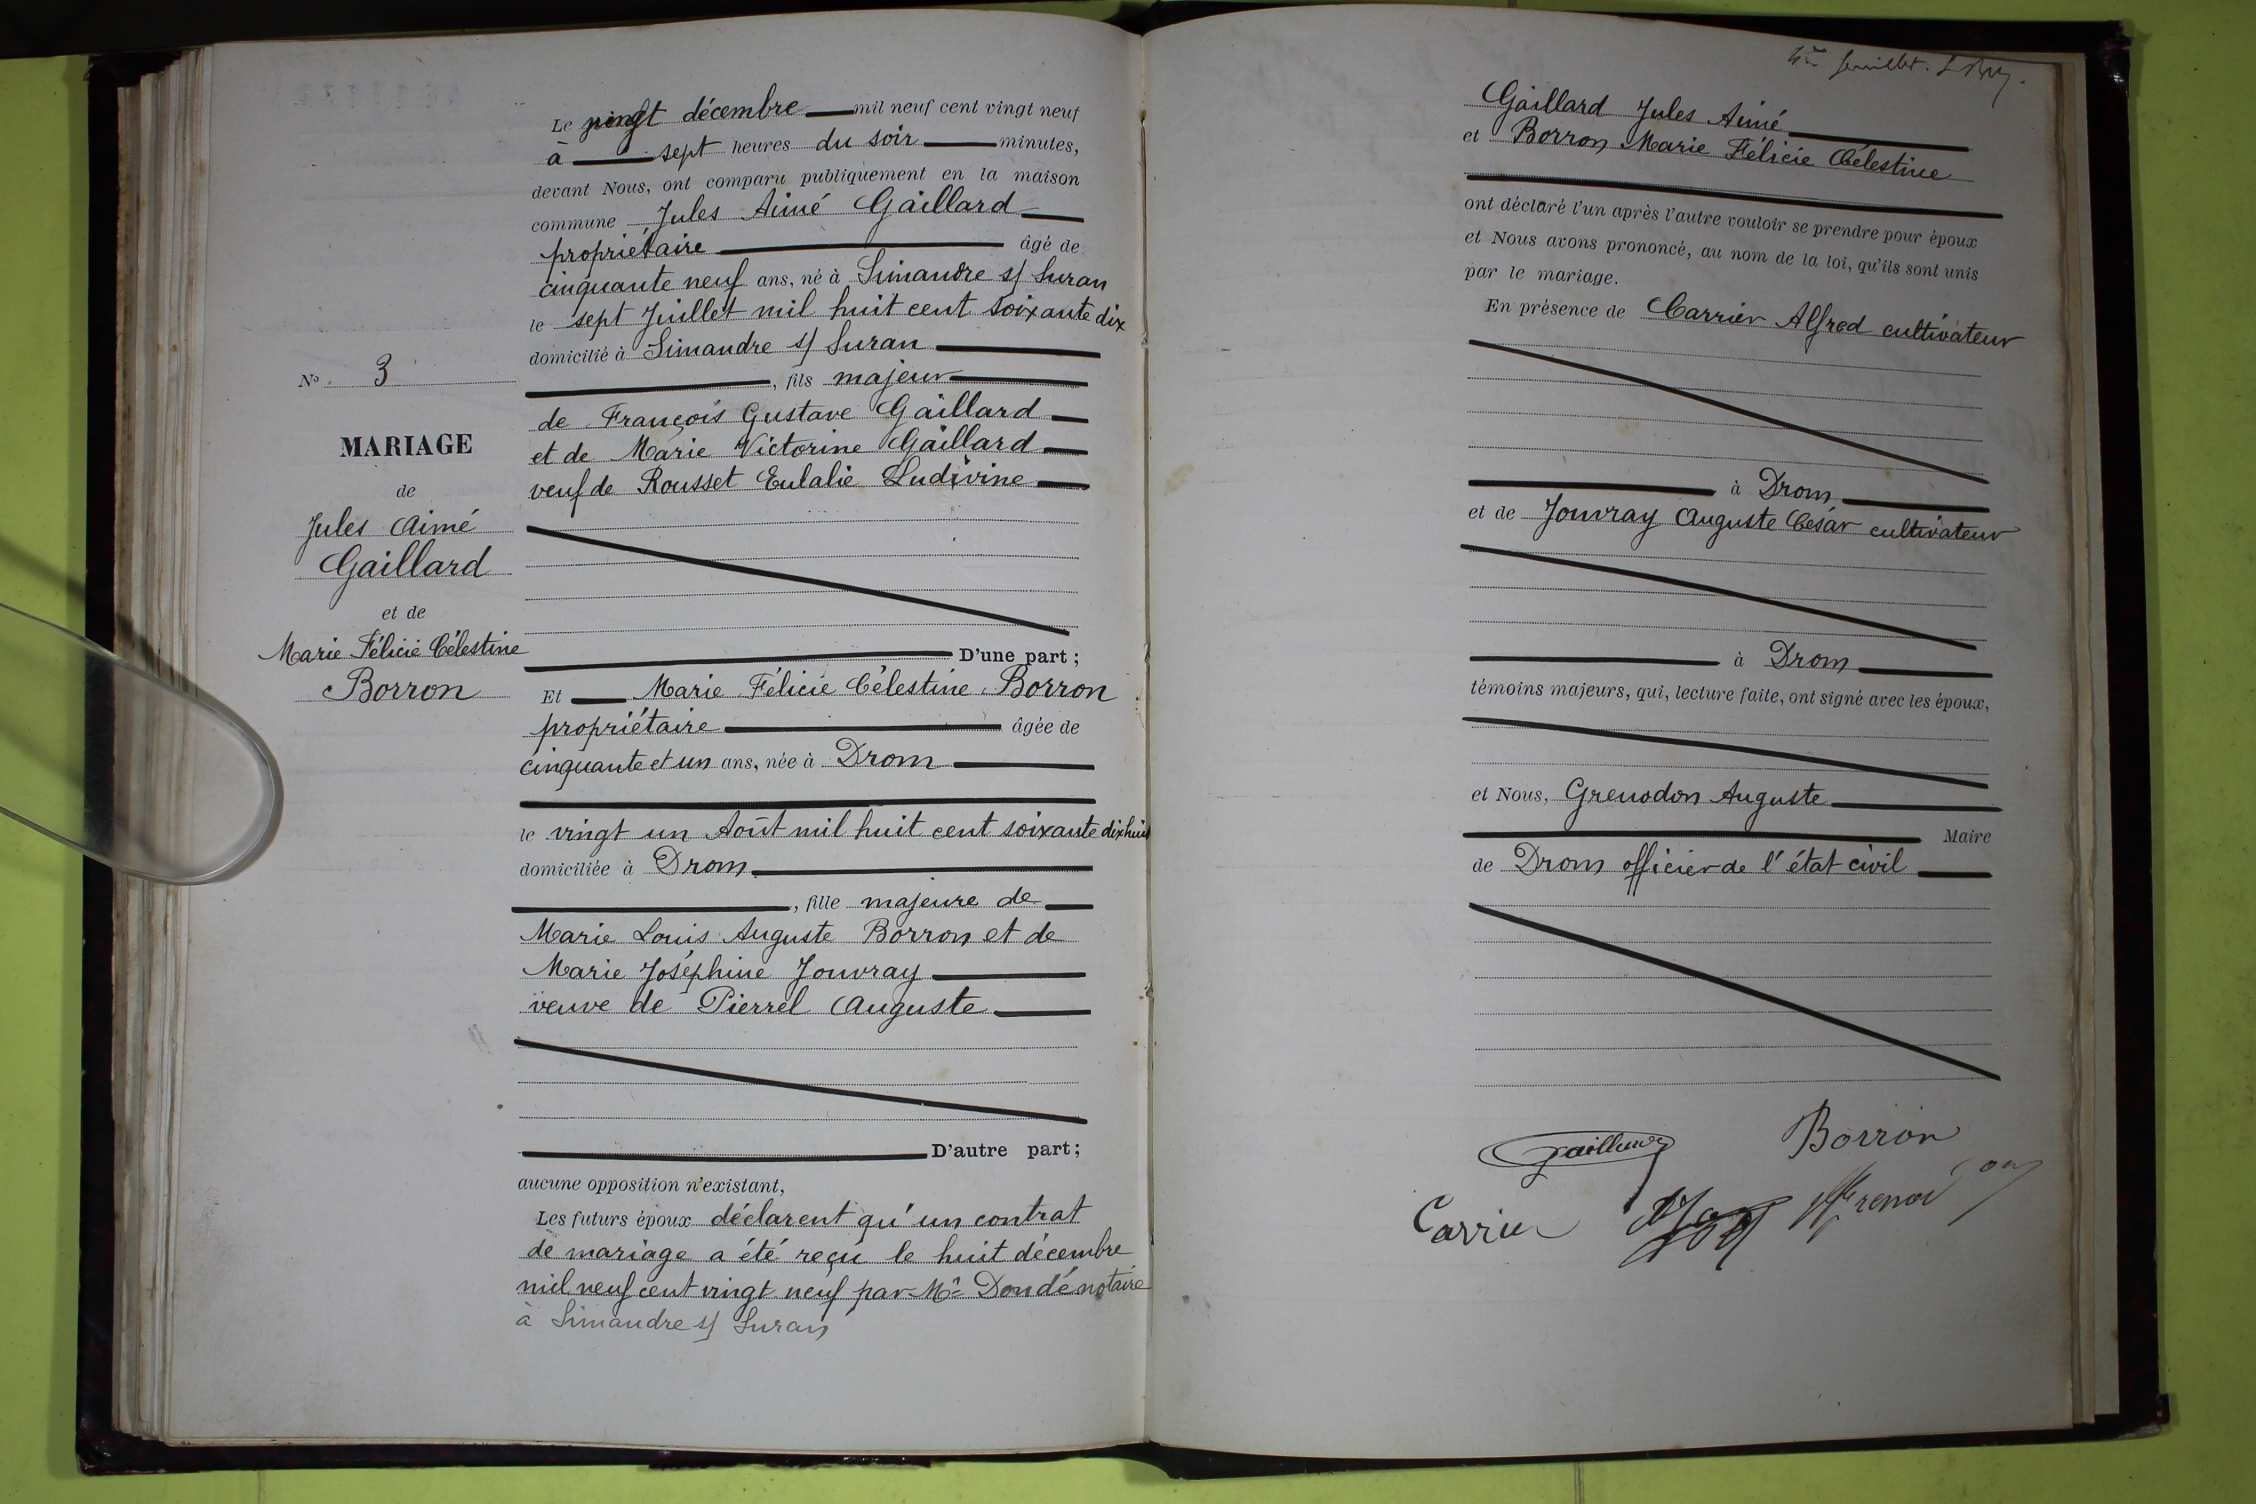 Le vingt décembre mil neuf cent vingt neuf
à sept heures du soir minutes,
devant Nous, ont comparu publiquement en la maison
commune Jules Aimé Gaillard
propriétaire âgé de
cinquante neuf ans, né à Simandre s/ Suran
le sept Juillet mil huit cent soixante dix
domicilié à Simandre s/ Suran
, fils majeur
de François Gustave Gaillard
et de Marie Victorine Gaillard
veuf de Rousset Eulalie Ludivine
D'une part ;
Et Marie Félicie Célestine Borron
propriétaire âgée de
cinquante et un ans, née à Drom
le vingt un Août mil huit cent soixante dix huit
domiciliée à Drom
, fille majeure de
Marie Louis Auguste Borron et de
Marie Joséphine Jouvray
veuve de Pierrel Auguste
D'autre part ;
aucune opposition n'existant,
Les futurs époux déclarent qu'un contrat
de mariage a été reçu le huit décembre
mil neuf cent vingt neuf par Me Dondé notaire
à Simandre s/ Suran
No 3
MARIAGE
de
Jules Aimé
Gaillard
et de
Marie Félicie Célestine
Borron
feuillet.
Gaillard Jules Aimé
et Borron Marie Félicie Célestine
ont déclaré l'un après l'autre vouloir se prendre pour époux
et Nous avons prononcé, au nom de la loi, qu'ils sont unis
par le mariage.
En présence de Carrier Alfred cultivateur
à Drom
et de Jouvray Auguste César cultivateur
à Drom
témoins majeurs, qui, lecture faite, ont signé avec les époux,
et Nous, Grenodon Auguste
Maire
de Drom officier de l'état civil
Gaillard
Borron
Carrier